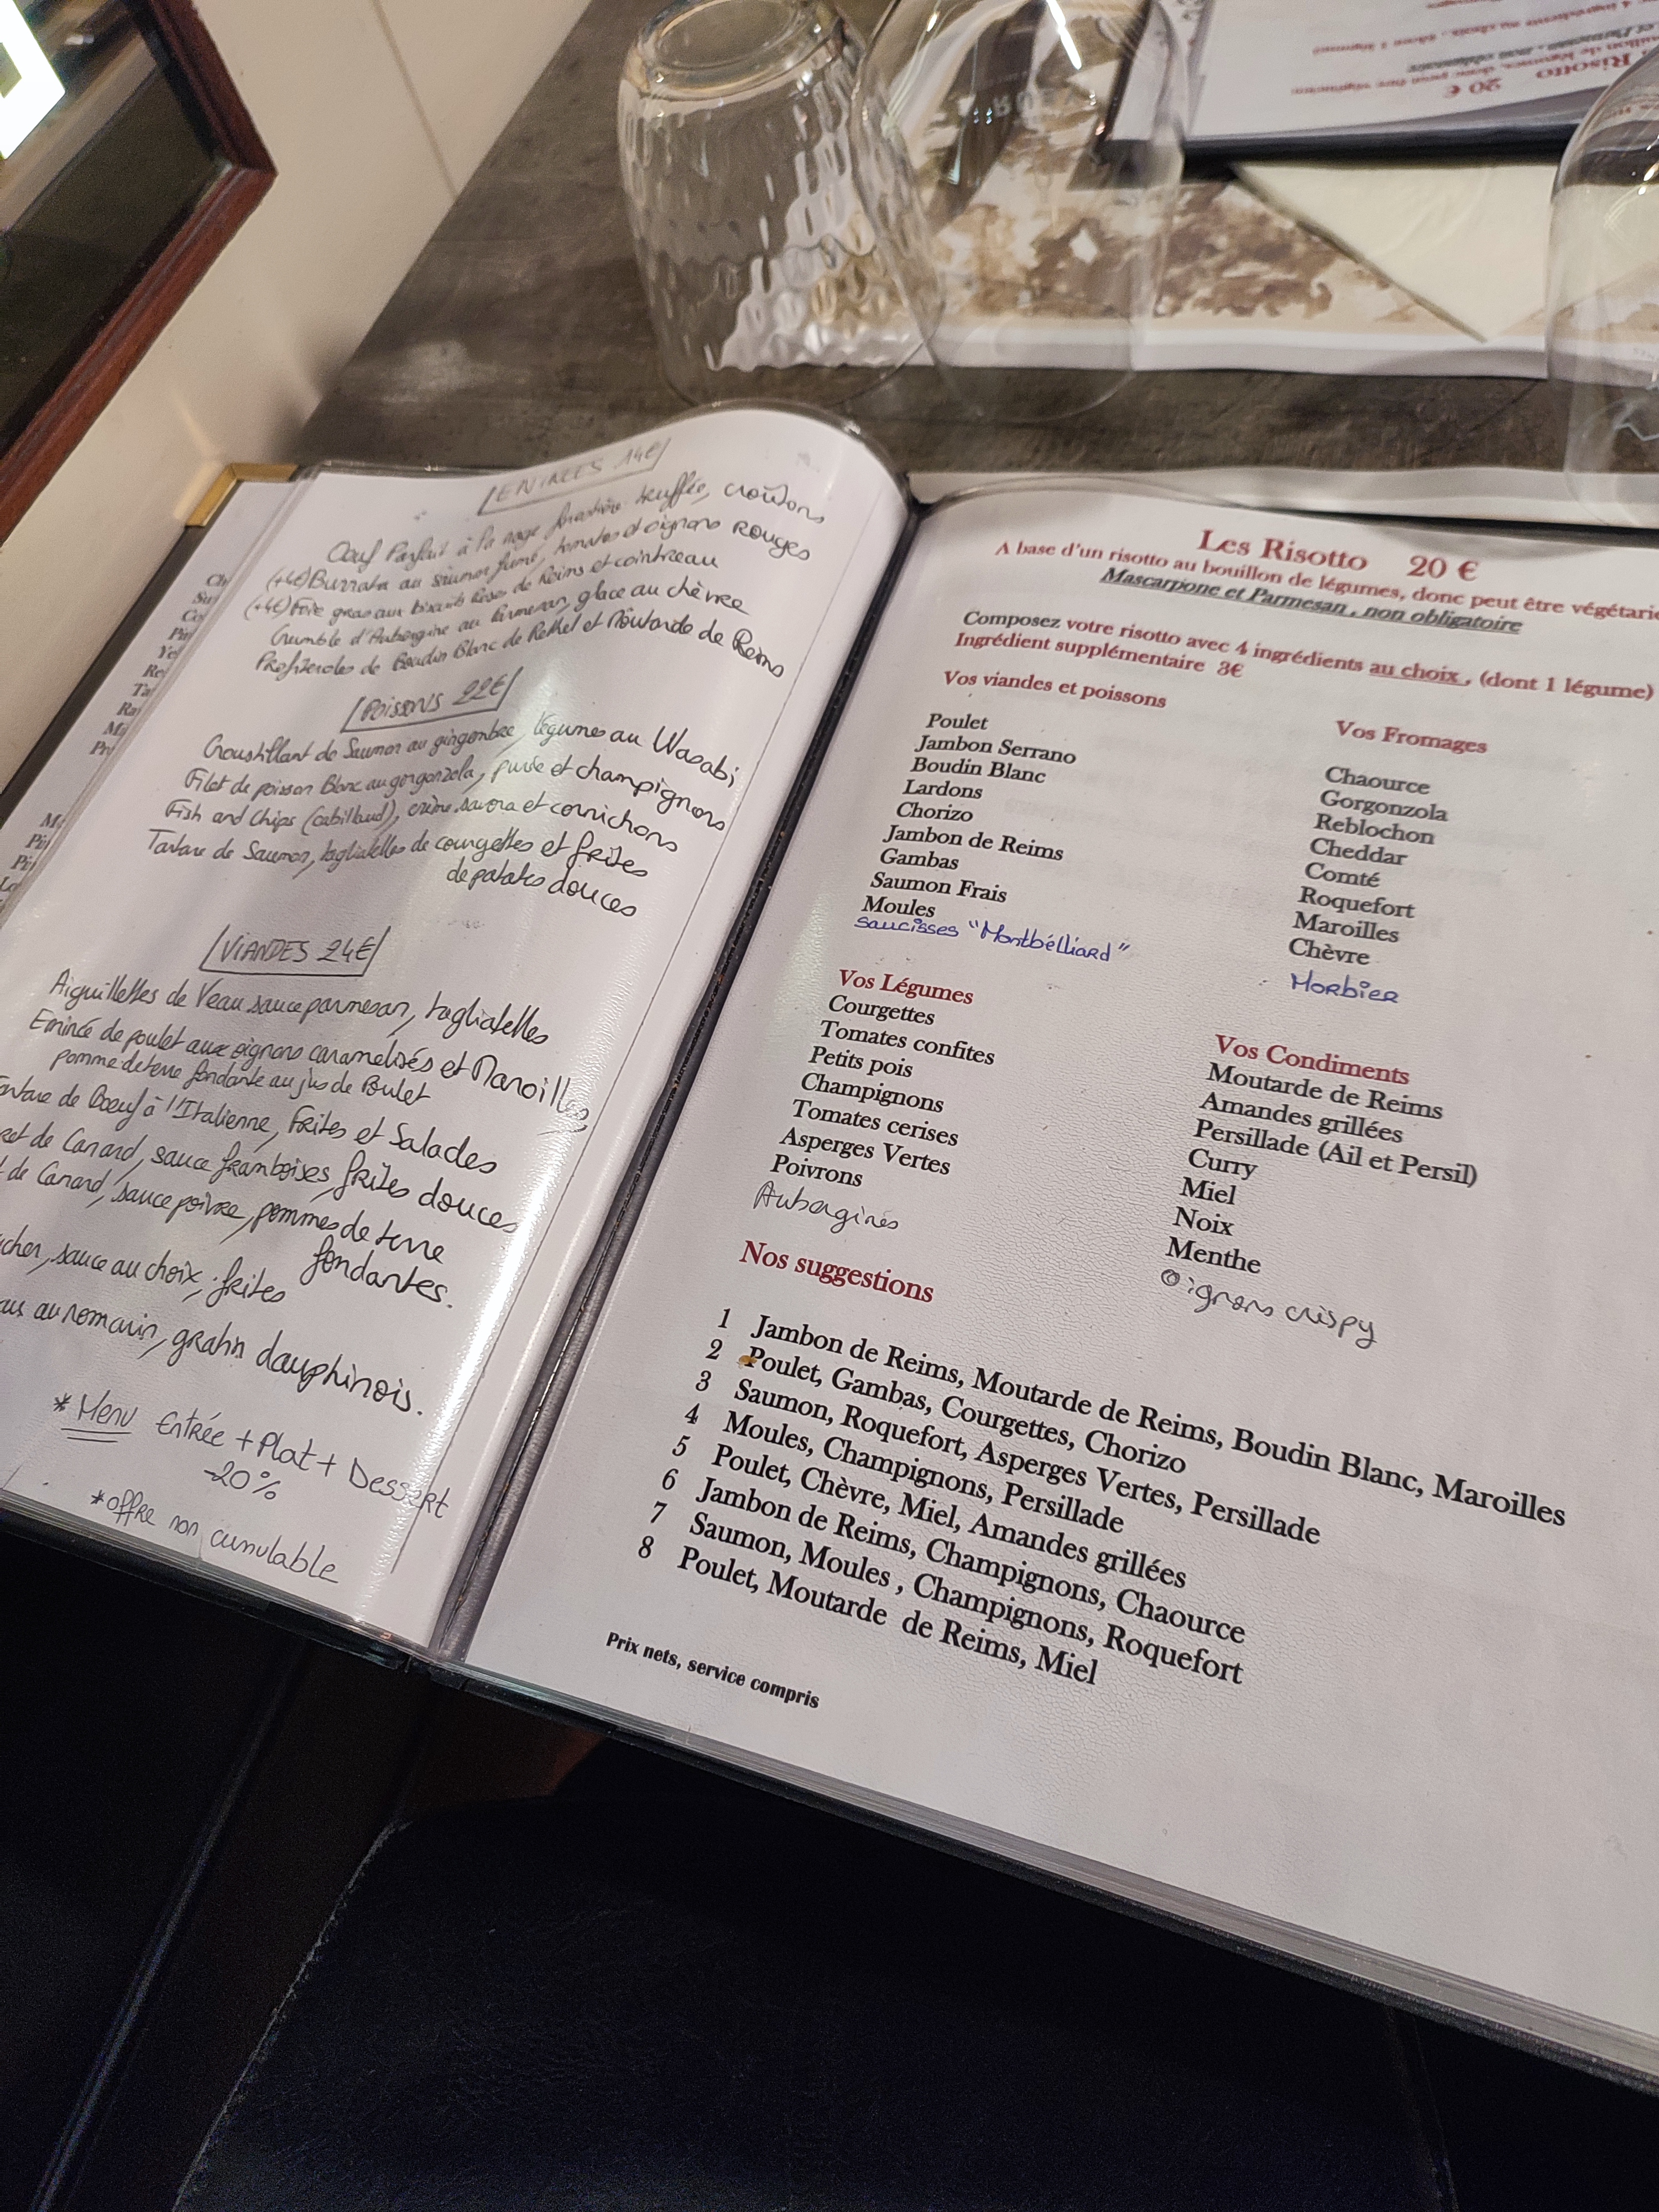 ENTRÉES 14€
Oeuf Parfait à la nage forestière truffée, croûtons
(+4€) Burrata au saumon fumé, tomates et oignons rouges
(+4€) Foie gras aux biscuits Roses de Reims et cointreau
Crumble d'Aubergine au Parmesan, glace au chèvre
Profiteroles de Boudin Blanc de Rethel et Moutarde de Reims
POISSONS 22€
Croustillant de Saumon au gingembre, légumes au Wasabi
Filet de poisson Blanc au gorgonzola, purée et champignons
Fish and Chips (cabillaud), crème savora et cornichons
Tartare de Saumon, tagliatelles de courgettes et frites
de patates douces
VIANDES 24€
Aiguillettes de Veau sauce parmesan, tagliatelles
Emincé de poulet aux oignons caramelisés et Maroilles,
pomme de terre fondante au jus de Poulet
de Boeuf à l'Italienne, Frites et Salades
de Canard, sauce framboises, frites douces
de Canard, sauce poivre, pommes de terre
fondantes.
sauce au choix, frites
au romarin, gratin dauphinois.
* Menu Entrée + Plat + Dessert
-20%
* offre non cumulable
Les Risotto 20 €
A base d'un risotto au bouillon de légumes, donc peut être
Mascarpone et Parmesan , non obligatoire
Composez votre risotto avec 4 ingrédients au choix , (dont 1 légume)
Ingrédient supplémentaire 3€
Vos viandes et poissons
Poulet
Jambon Serrano
Boudin Blanc
Lardons
Chorizo
Jambon de Reims
Gambas
Saumon Frais
Moules
saucisses "Montbélliard"
Vos Fromages
Chaource
Gorgonzola
Reblochon
Cheddar
Comté
Roquefort
Maroilles
Chèvre
Morbier
Vos Légumes
Courgettes
Tomates confites
Petits pois
Champignons
Tomates cerises
Asperges Vertes
Poivrons
Aubergines
Vos Condiments
Moutarde de Reims
Amandes grillées
Persillade (Ail et Persil)
Curry
Miel
Noix
Menthe
Oignons crispy
Nos suggestions
1 Jambon de Reims, Moutarde de Reims, Boudin Blanc, Maroilles
2 Poulet, Gambas, Courgettes, Chorizo
3 Saumon, Roquefort, Asperges Vertes, Persillade
4 Moules, Champignons, Persillade
5 Poulet, Chèvre, Miel, Amandes grillées
6 Jambon de Reims, Champignons, Chaource
7 Saumon, Moules , Champignons, Roquefort
8 Poulet, Moutarde de Reims, Miel
Prix nets, service compris